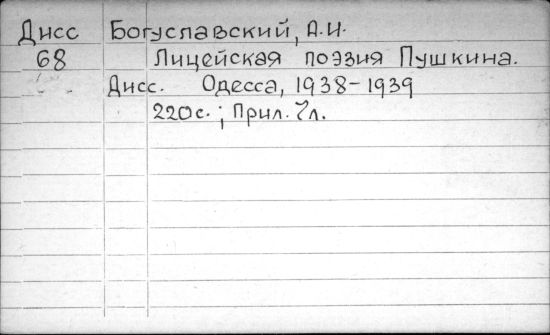 Дисс Богуславский, А.И.
68 Лицейская поэзия Пушкина.
Дисс. Одесса, 1938-1939
220с.; Прил. 7л.